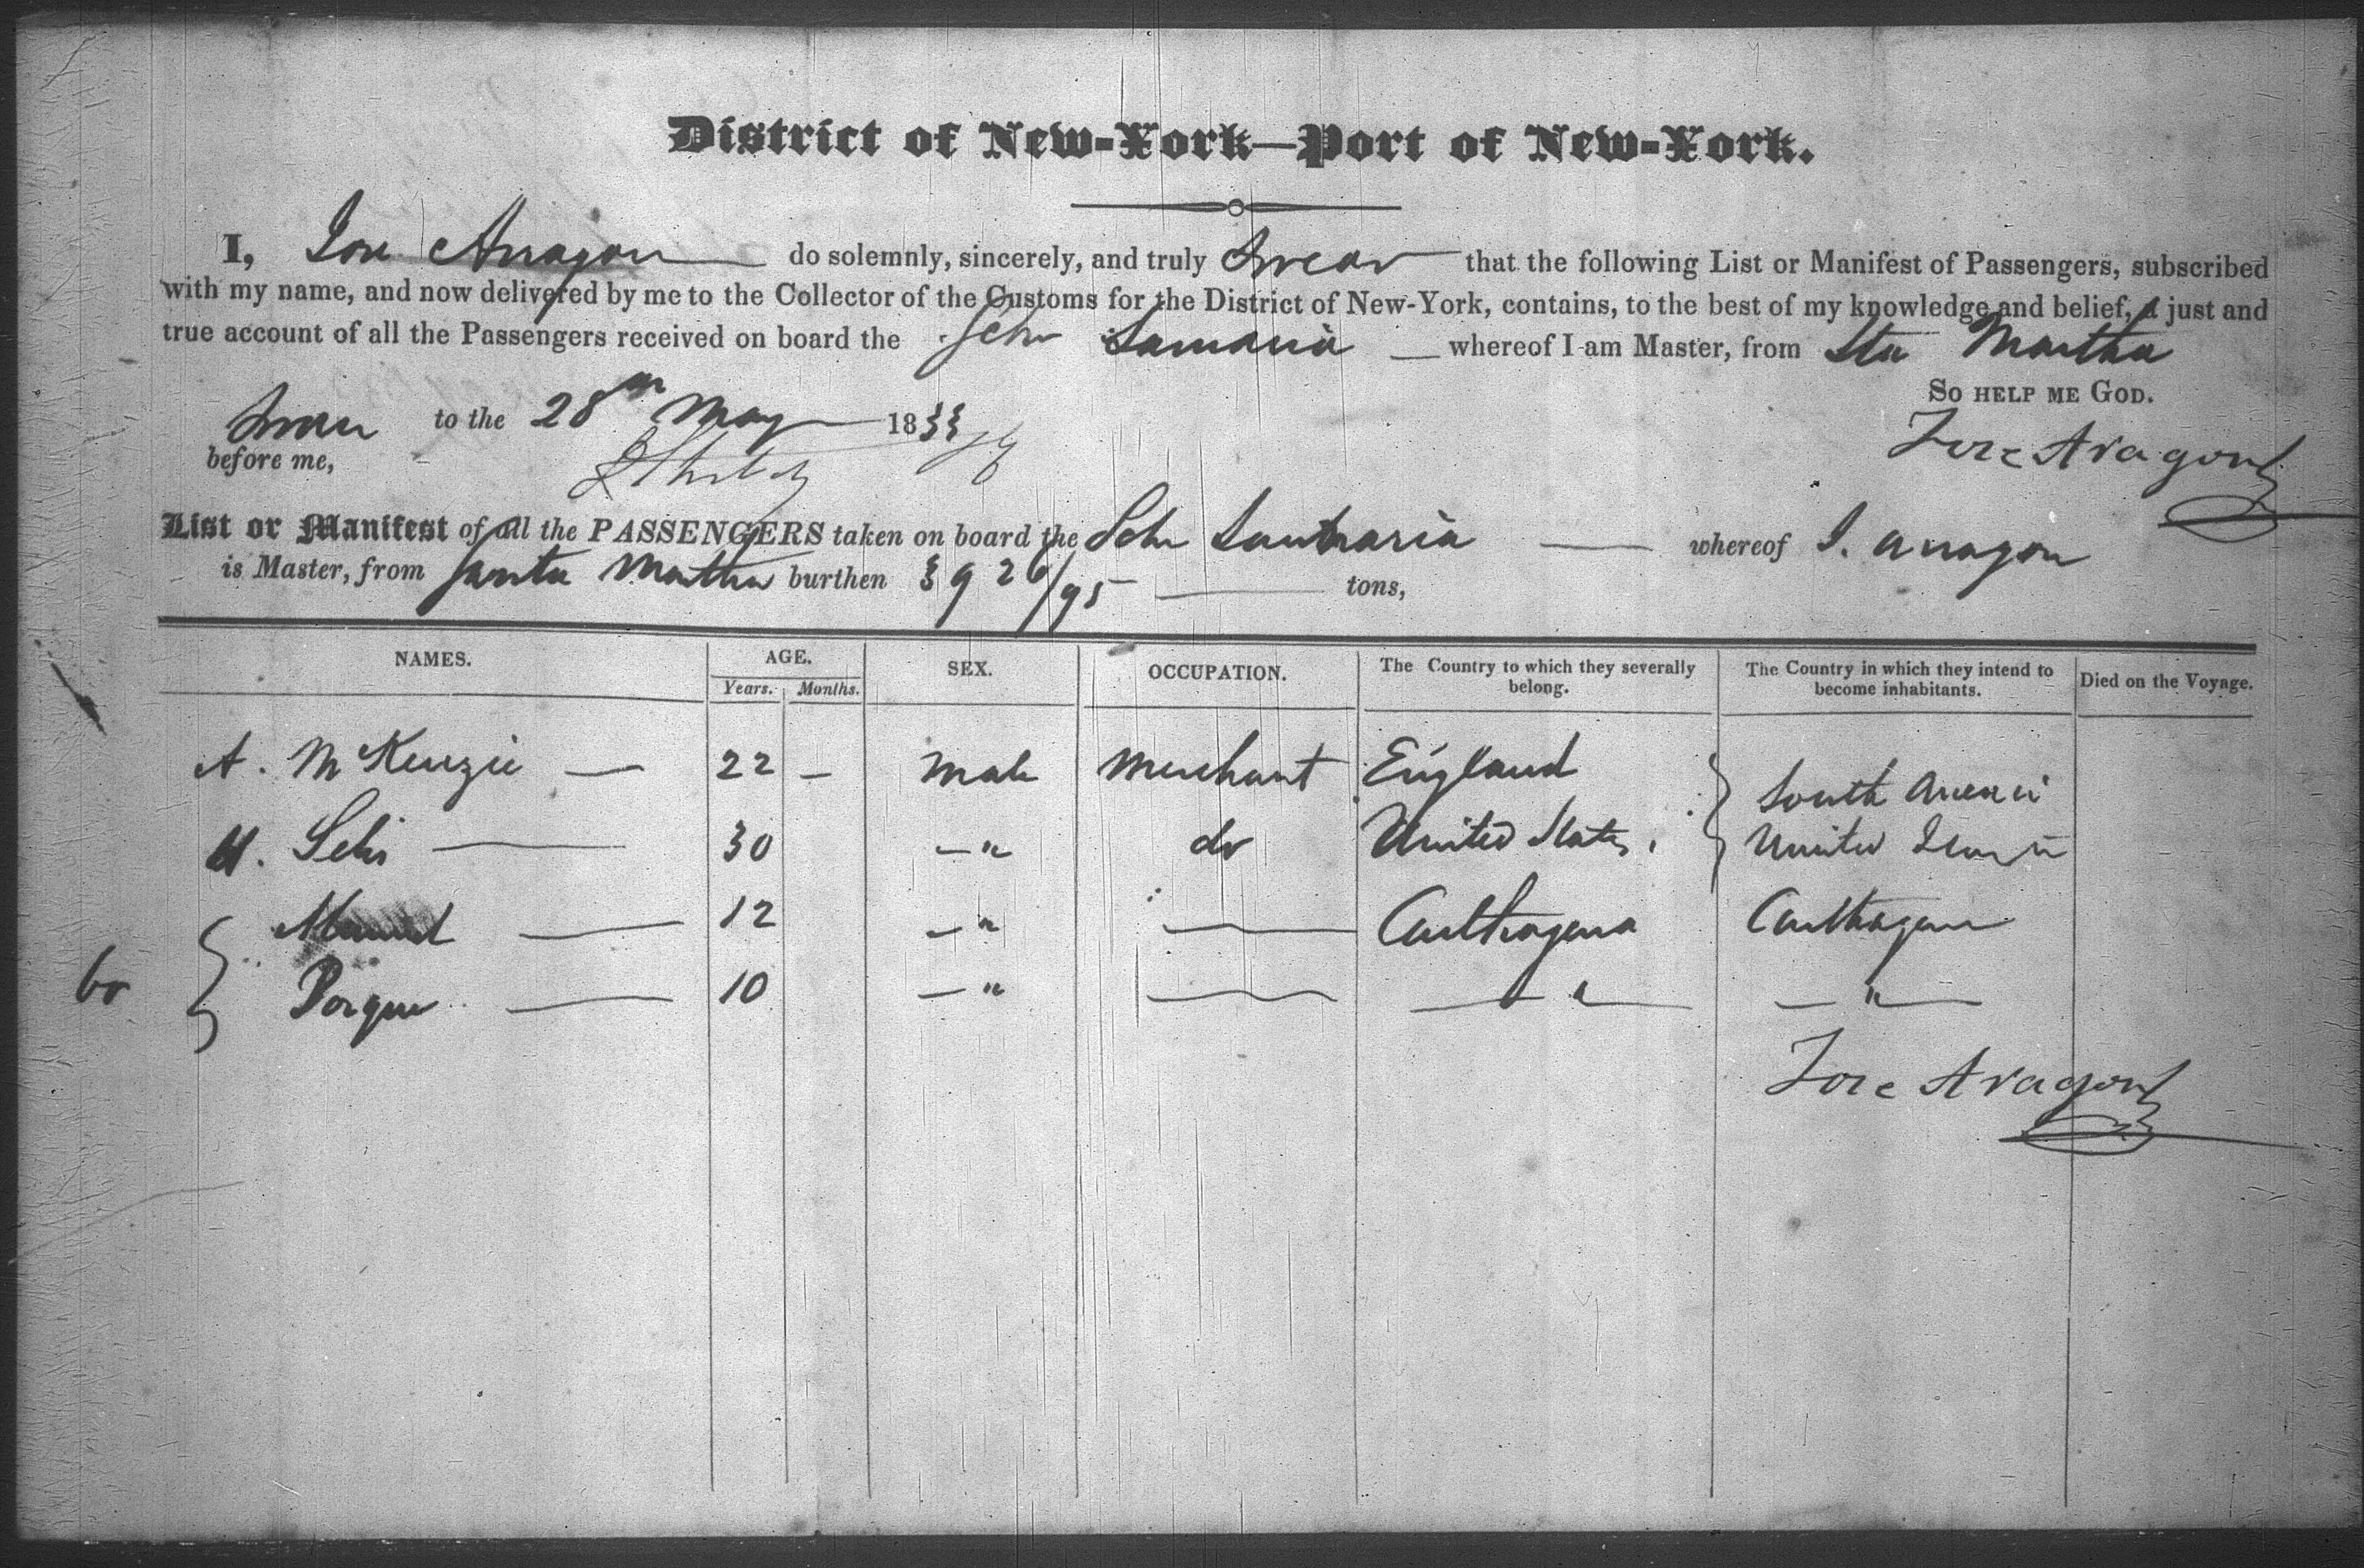 District of New-York—Port of New-York.
I, Jose Arragon do solemnly, sincerely, and truly Swear that the following List or Manifest of Passengers, subscribed
with my name, and now delivered by me to the Collector of the Customs for the District of New-York, contains, to the best of my knowledge and belief, a just and
true account of all the Passengers received on board the Schr whereof I am Master, from Sta Martha
SO HELP ME GOD.
Sworn to the 28th May 1833
before me,
Jose Aragon
List or Manifest of all the PASSENGERS taken on board the Schr whereof J. Arragon
is Master, from Santa Martha burthen 39 26/95 tons,
NAMES. AGE. SEX. OCCUPATION. The Country to which they severally belong. The Country in which they intend to become inhabitants. Died on the Voyage.
Years. Months.
A. McKenzie — 22 — Male Merchant England South America
30 — " do United States United States
Manuel — 12 — " — Carthagena Carthagena
10 — " — — " — — " —
Jose Aragon